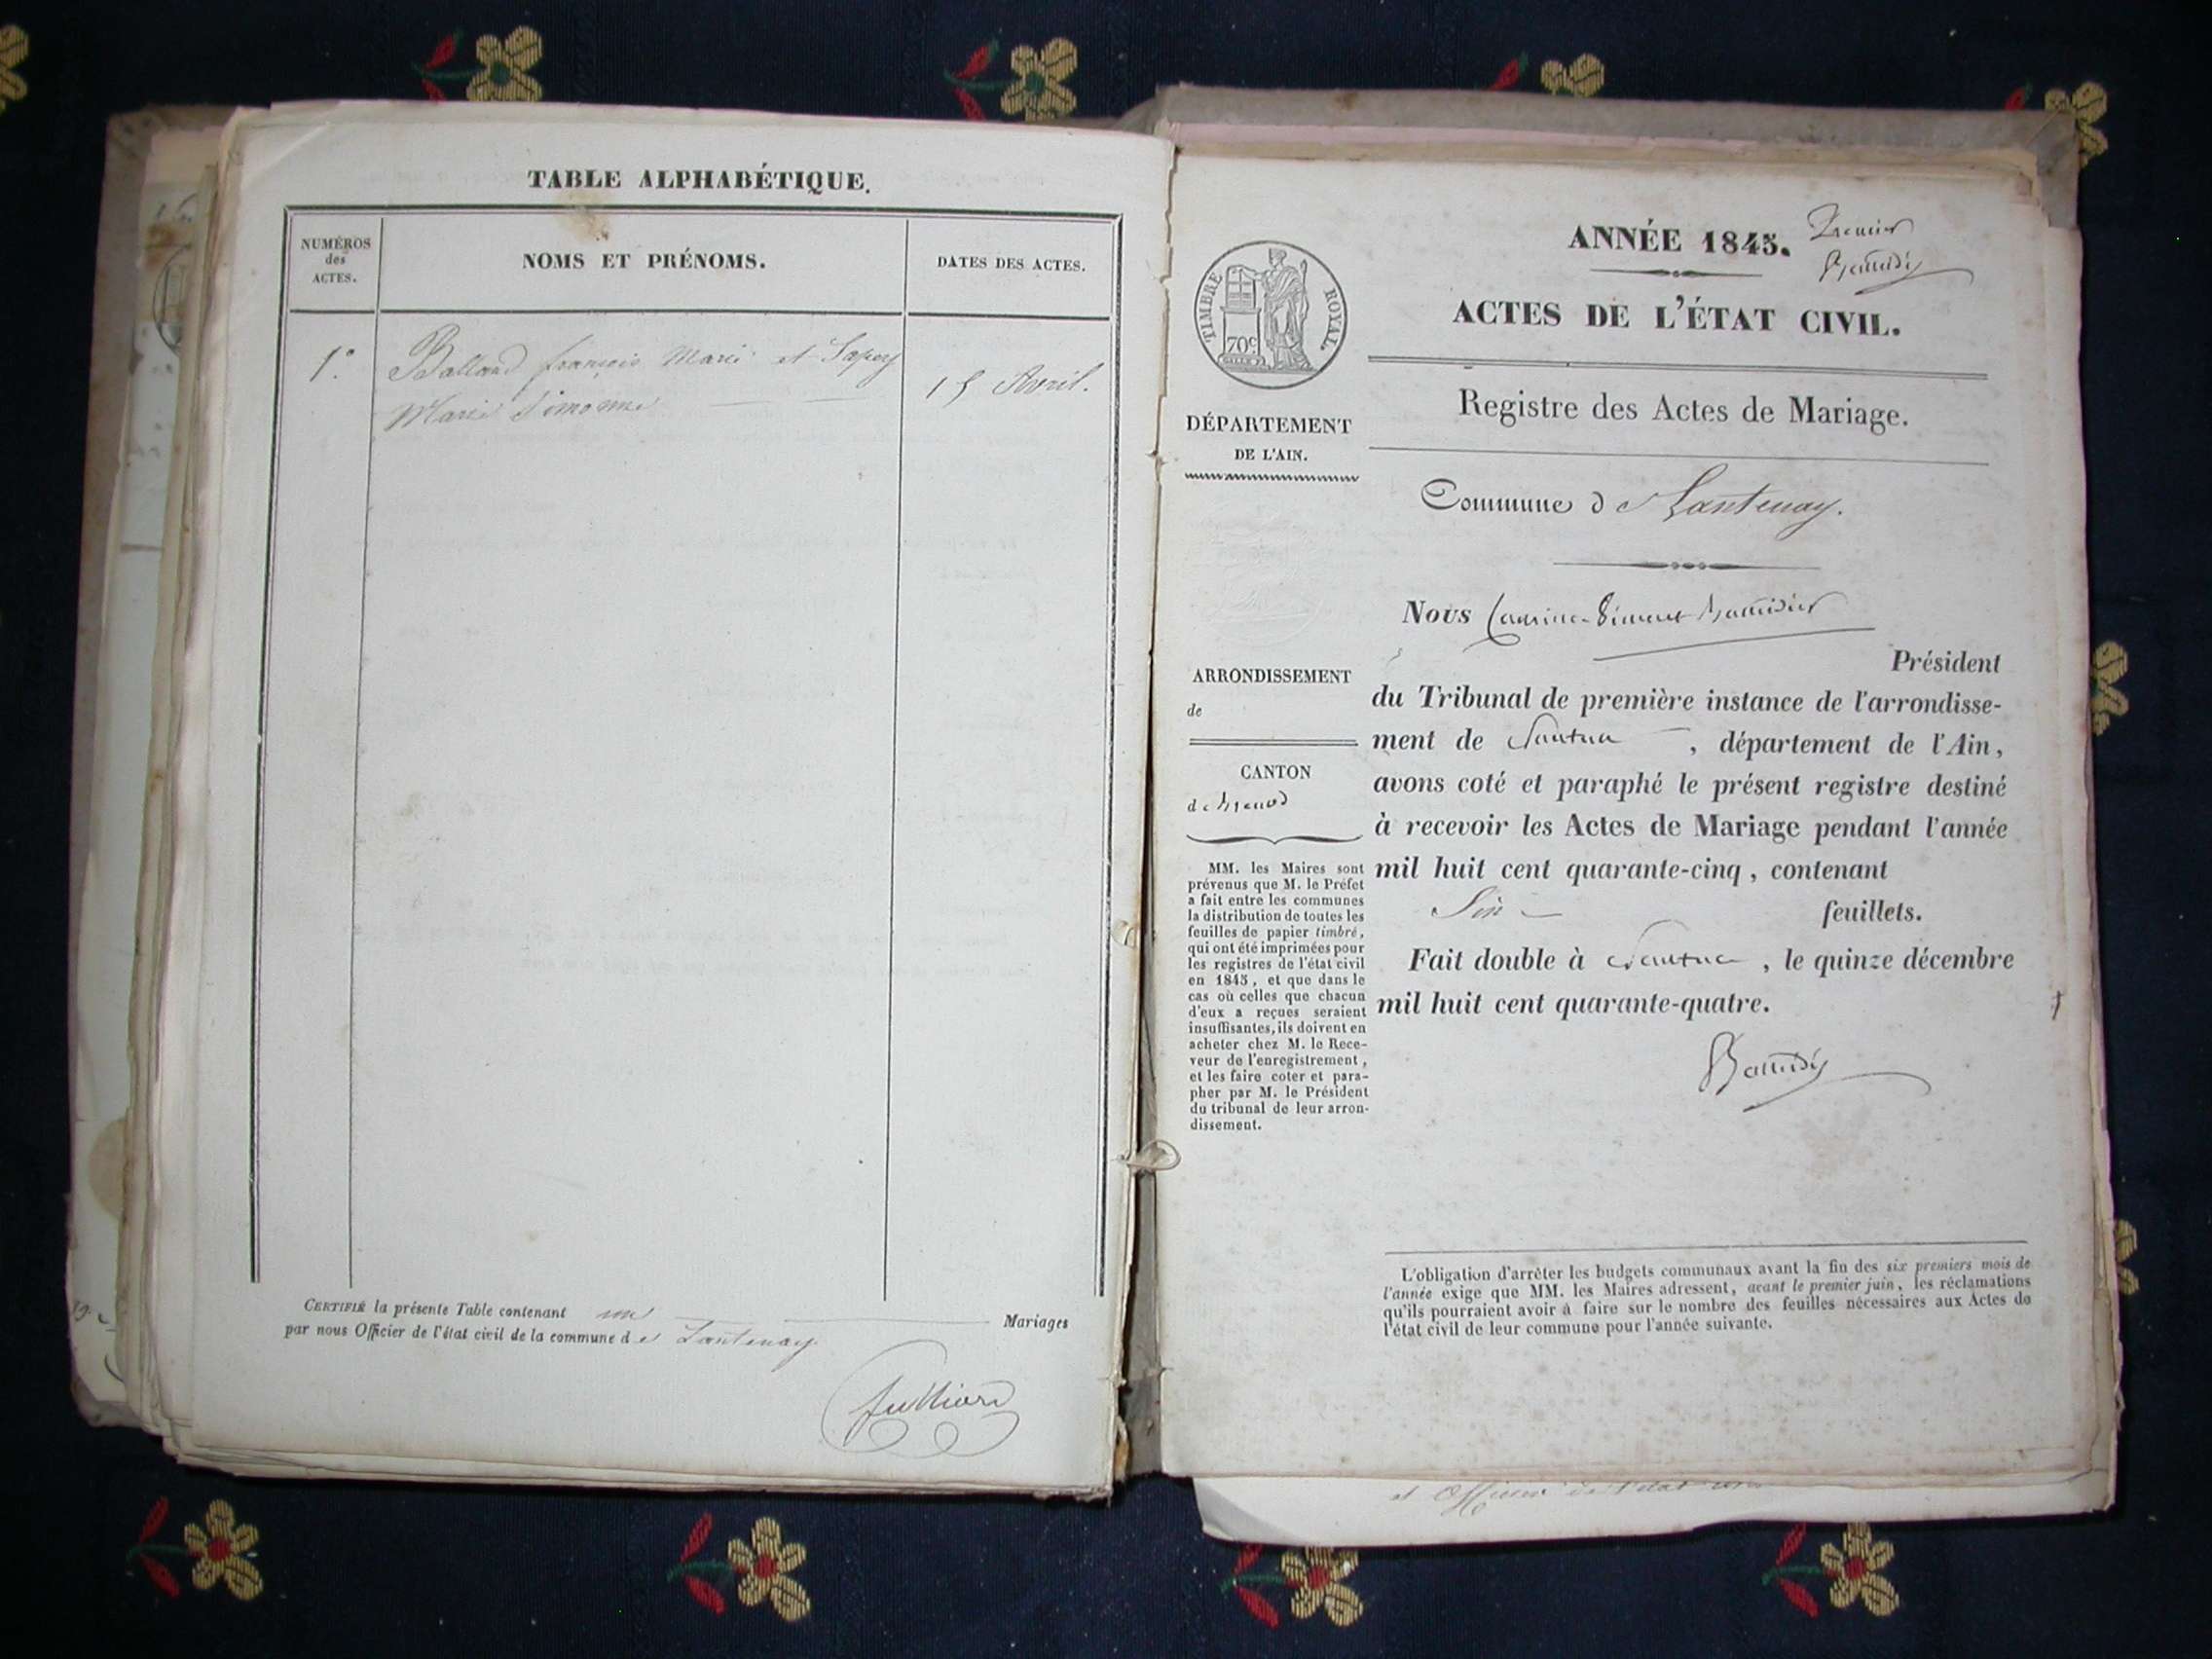 TABLE ALPHABÉTIQUE.
NUMÉROS
des
ACTES.
NOMS ET PRÉNOMS.
DATES DES ACTES.
1°.
Balland françois Marie et Savey
Marie Simonne
15 Avril.
CERTIFIÉ la présente Table contenant une Mariages
par nous Officier de l'état civil de la commune de Lantenay
Julliard
ANNÉE 1845.
Premier
ACTES DE L'ÉTAT CIVIL.
TIMBRE ROYAL.
70c
Registre des Actes de Mariage.
DÉPARTEMENT
DE L'AIN.
Commune de Lantenay.
Nous
Président
ARRONDISSEMENT
de
du Tribunal de première instance de l'arrondisse-
ment de Nantua, département de l'Ain,
CANTON
de Brenod
avons coté et paraphé le présent registre destiné
à recevoir les Actes de Mariage pendant l'année
mil huit cent quarante-cinq, contenant
Six feuillets.
Fait double à Nantua, le quinze décembre
mil huit cent quarante-quatre.
MM. les Maires sont
prévenus que M. le Préfet
a fait entre les communes
la distribution de toutes les
feuilles de papier timbré,
qui ont été imprimées pour
les registres de l'état civil
en 1845, et que dans le
cas où celles que chacun
d'eux a reçues seraient
insuffisantes, ils doivent en
acheter chez M. le Rece-
veur de l'enregistrement,
et les faire coter et para-
pher par M. le Président
du tribunal de leur arron-
dissement.
L'obligation d'arrêter les budgets communaux avant la fin des six premiers mois de
l'année exige que MM. les Maires adressent, avant le premier juin, les réclamations
qu'ils pourraient avoir à faire sur le nombre des feuilles nécessaires aux Actes de
l'état civil de leur commune pour l'année suivante.
et Officier de l'état civil